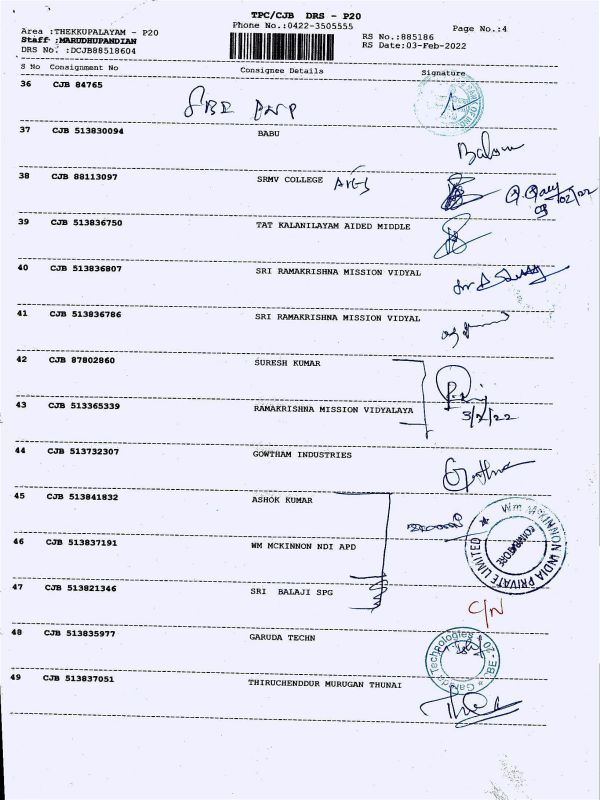 TPC/CJB DRS - P20
Area :THEKKUPALAYAM - P20
Phone No.:0422-3505555
Page No.:4
Staff :MARUDHUPANDIAN
RS No.:885186
DRS No. :DCJB88518604
RS Date:03-Feb-2022
S No Consignment No Consignee Details Signature
36 CJB 84765
SBI
37 CJB 513830094 BABU
38 CJB 88113097 SRMV COLLEGE
39 CJB 513836750 TAT KALANILAYAM AIDED MIDDLE
40 CJB 513836807 SRI RAMAKRISHNA MISSION VIDYAL
41 CJB 513836786 SRI RAMAKRISHNA MISSION VIDYAL
42 CJB 87802860 SURESH KUMAR
43 CJB 513365339 RAMAKRISHNA MISSION VIDYALAYA
3/2/22
44 CJB 513732307 GOWTHAM INDUSTRIES
45 CJB 513841832 ASHOK KUMAR
Wm MCKINNON INDIA PRIVATE LIMITED ★
COIMBATORE
46 CJB 513837191 WM MCKINNON NDI APD
47 CJB 513821346 SRI BALAJI SPG
C/N
48 CJB 513835977 GARUDA TECHN
Technologies
49 CJB 513837051 THIRUCHENDDUR MURUGAN THUNAI